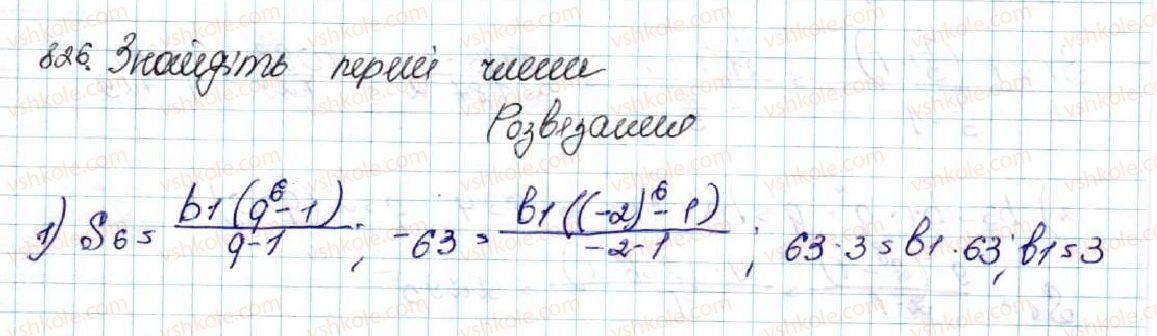 826. Знайдіть перші члени
Розв'язання
1) S6 = b1(q^6-1)/q-1; -63 = b1((-2)^6-1)/-2-1; 63·3 = b1·63; b1 = 3